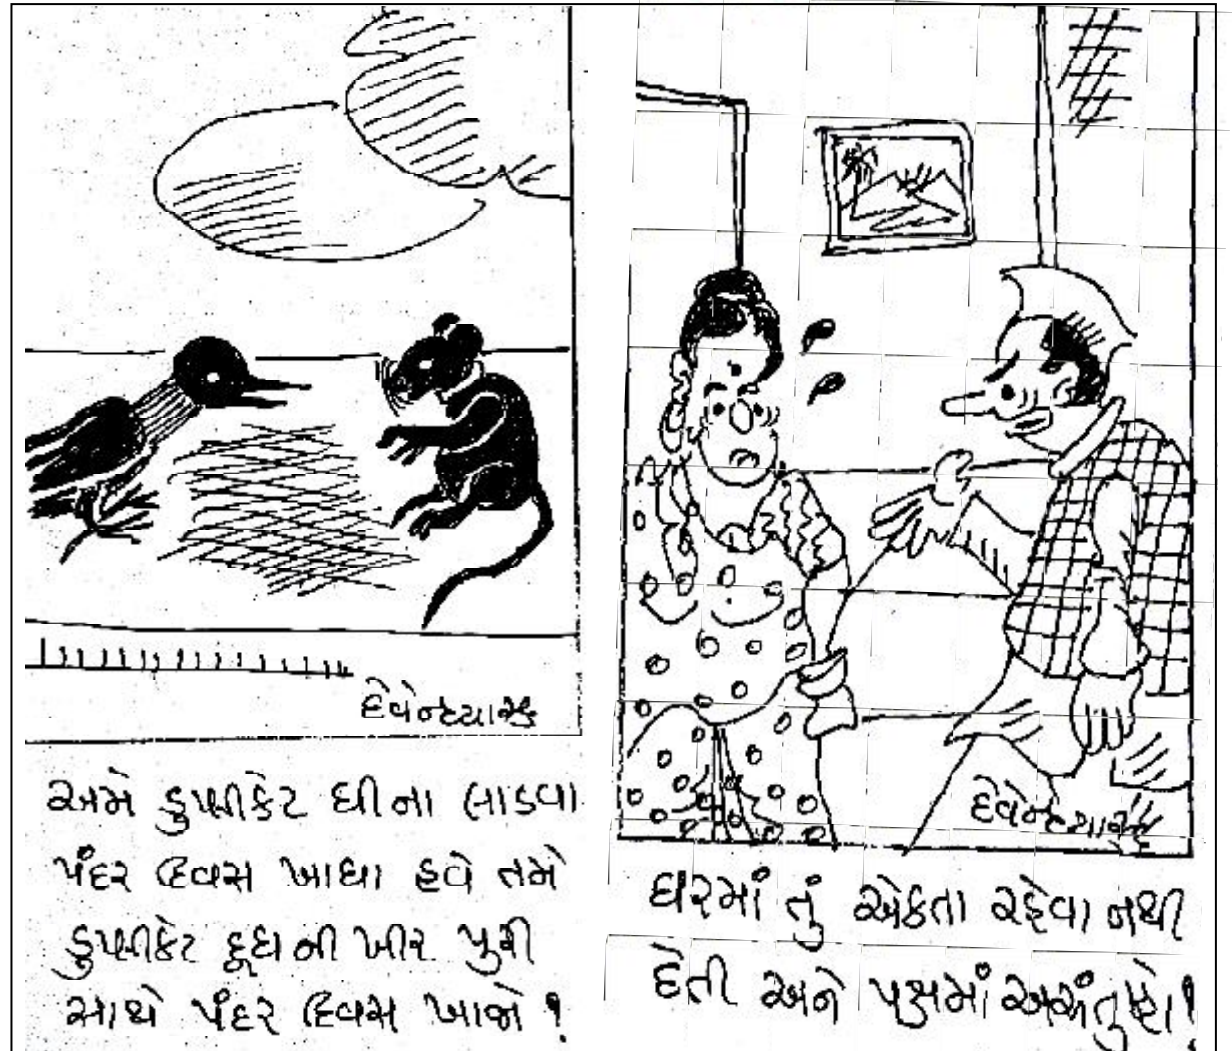 દેવેન્દ્રવ્યાસ
અમે ડુપ્લીકેટ ઘીના લાડવા
પંદર દિવસ ખાધા હવે તમે
ડુપ્લીકેટ દૂધની ખીર પુરી
સાથે પંદર દિવસ ખાજો !
દેવેન્દ્રવ્યાસ
ઘરમાં તું એકતા રહેવા નથી
દેતી અને પક્ષમાં અસંતુષ્ટો!